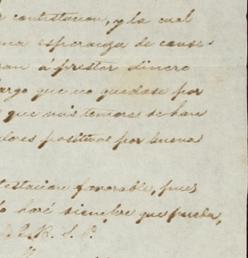 contestacion, y la cual
una esperanza de conse-
ran á prestar dinero
largo que no quedase por
que mis temores se han
dolores positivos por buena
testacion favorable, pues
lo haré siempre que pueda,